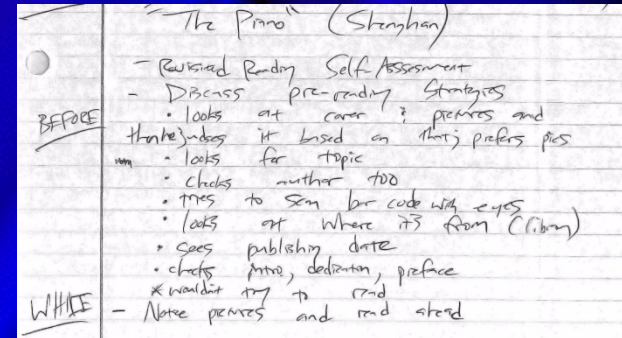 "The Piano" (Shanghan)
- Reviewed Reading Self-Assessment
- Discuss pre-reading Strategies
BEFORE • looks at cover & pictures and
then he judges it based on that; prefers pics
• looks for topic
• checks author too
• tries to scan bar code with eyes
• looks at where it's from (library)
• sees publishing date
• checks intro, dedication, preface
* wouldn't try to read
WHILE - Notes pictures and read ahead